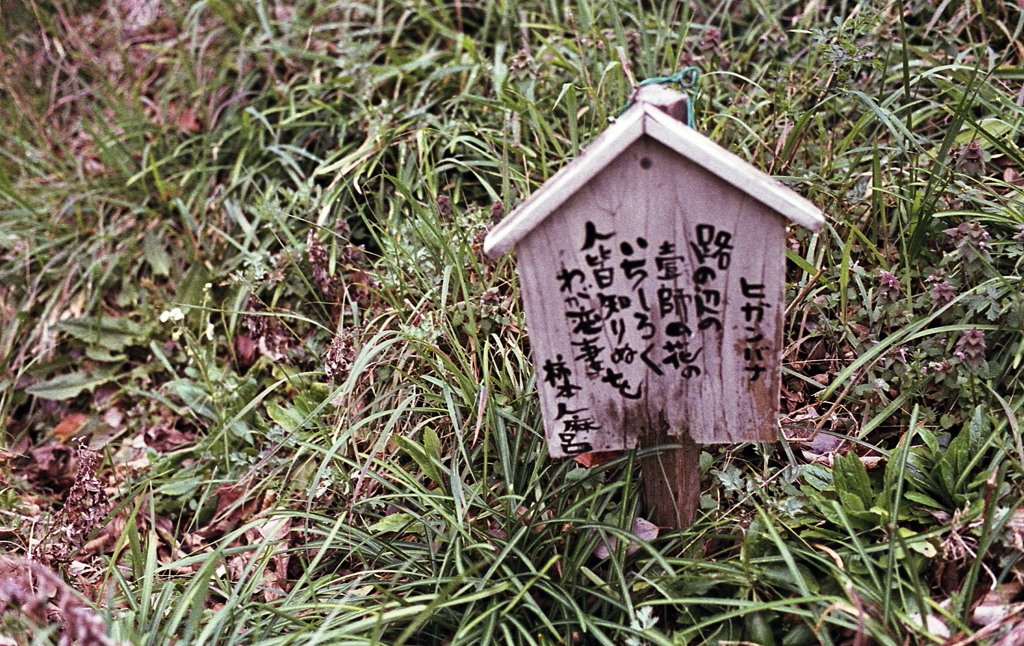 ヒガンバナ
路の辺の
壹師の花の
いちしろく
人皆知りぬ
わが恋妻も
柿本人麻呂